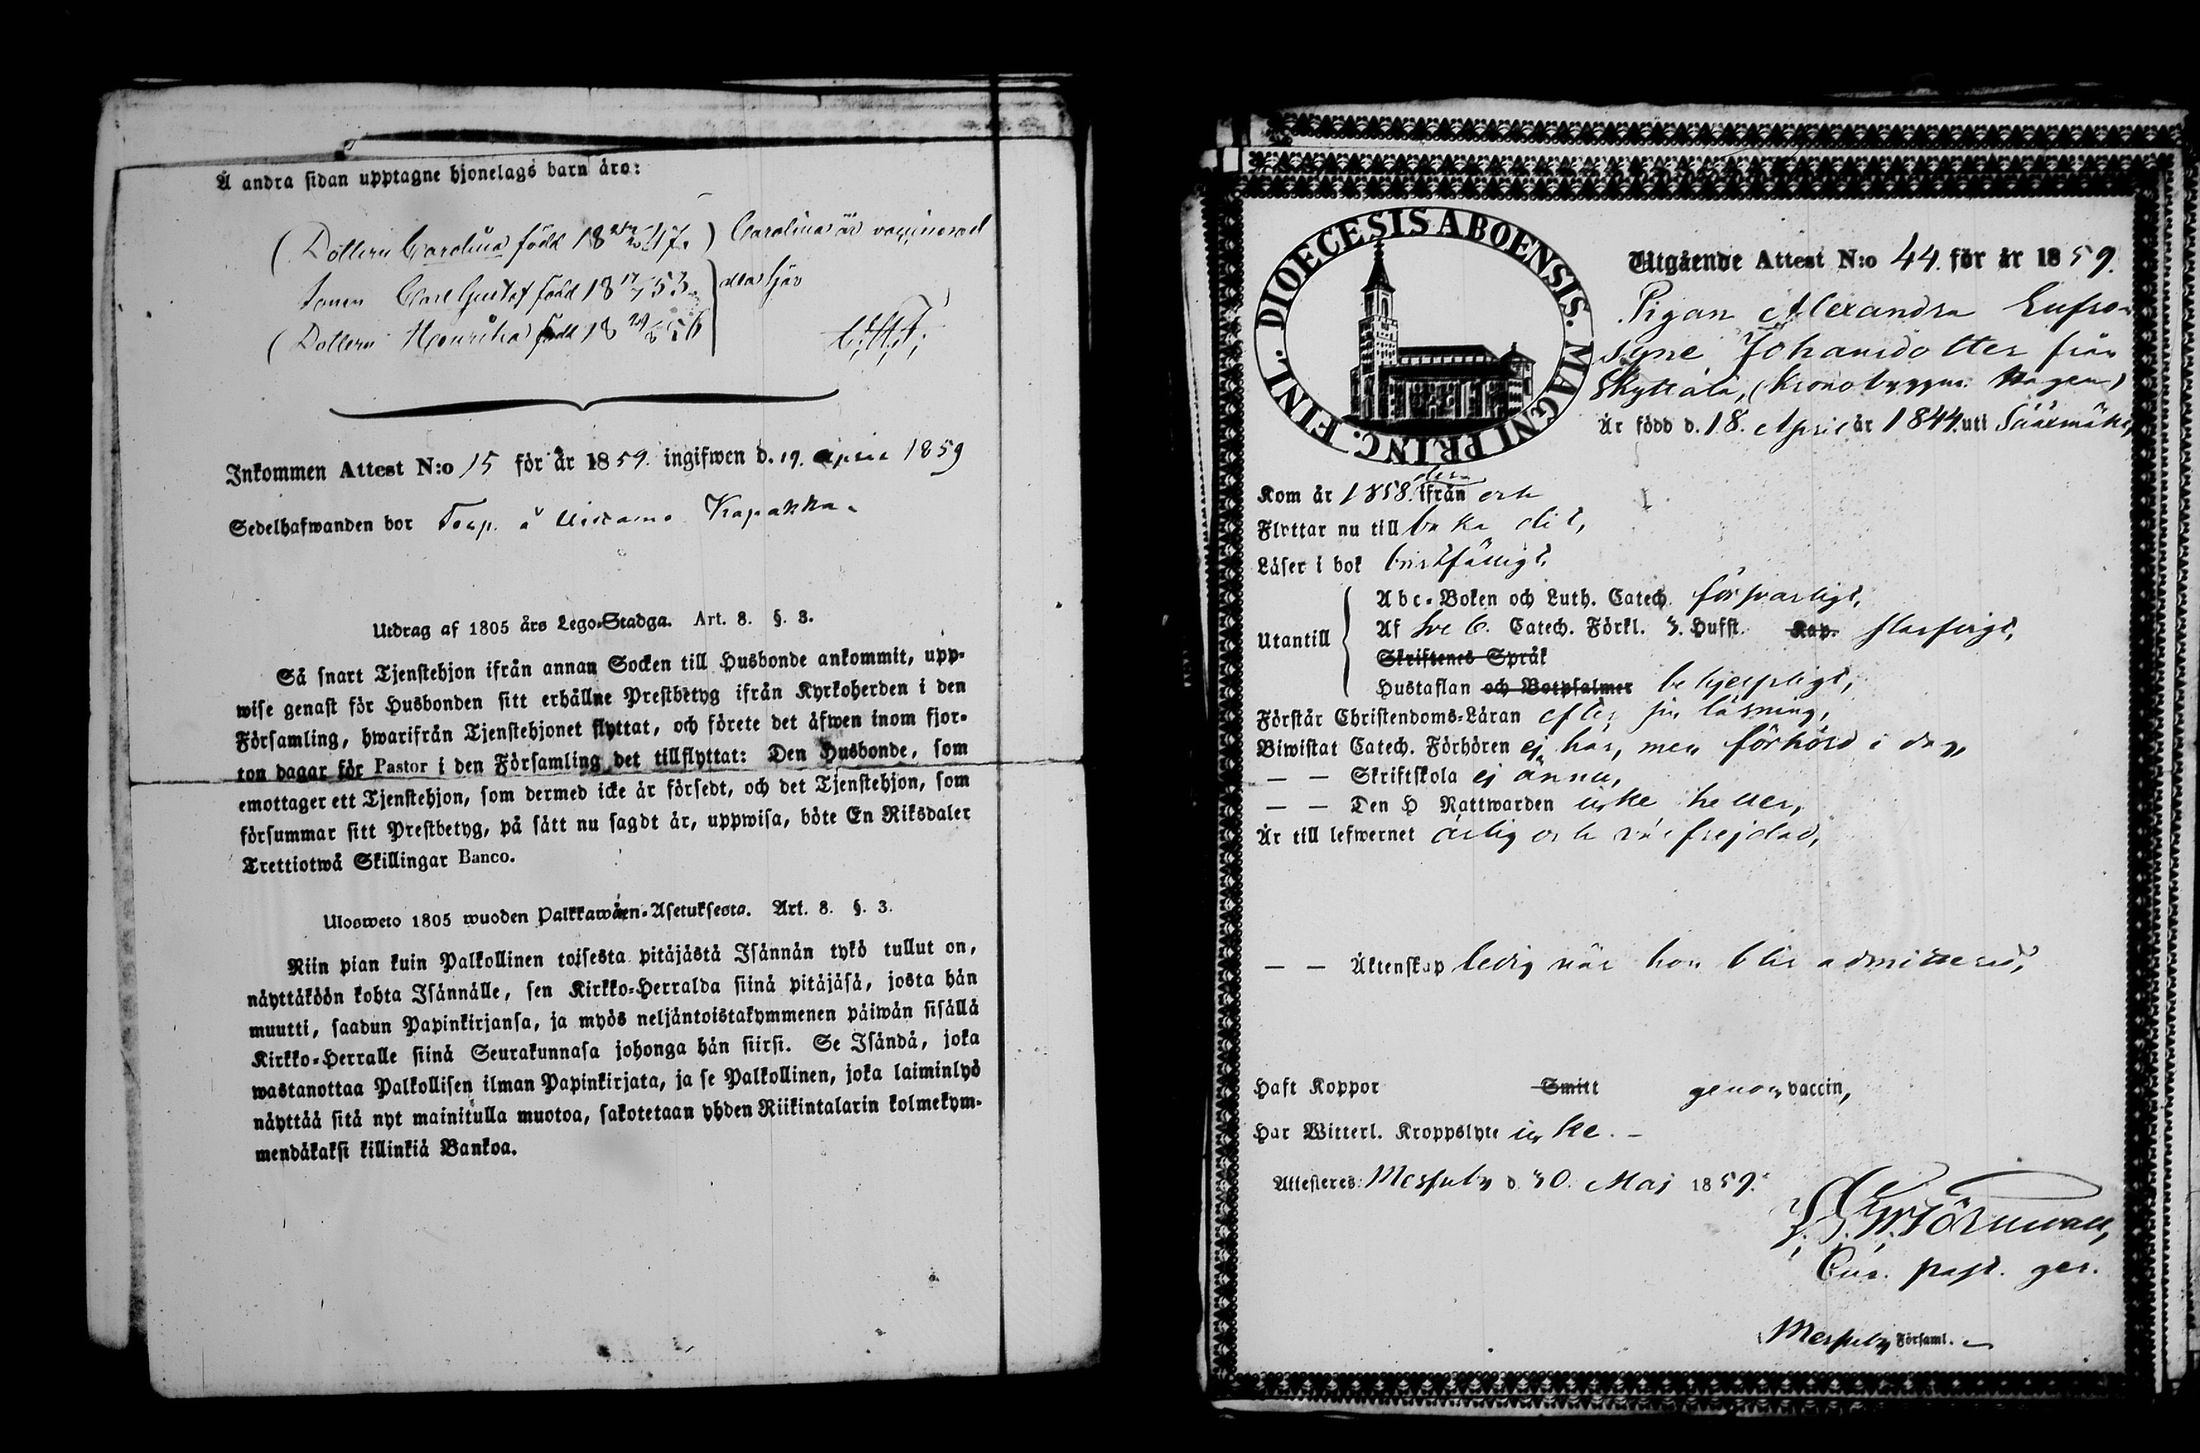 Å andra sidan upptagne hjonelags barn äro:
( Dottern Carolina född 18 47. ) Carolina är vaccinerad
sonen Carl Gustaf född 18 17/7 53
( Dottern Henrika född 18 56
Inkommen Attest N:o 15 för år 1859. ingifwen d. 19. April 1859
Sedelhafwanden bor Torp. å Kapakka.
Utdrag af 1805 års Lego-Stadga. Art. 8. §. 3.
Så snart Tjenstehjon ifrån annan Socken till Husbonde ankommit, upp-
wise genast för Husbonden sitt erhållne Prestbetyg ifrån Kyrkoherden i den
Församling, hwarifrån Tjenstehjonet flyttat, och förete det äfwen inom fjor-
ton dagar för Pastor i den Församling det tillflyttat: Den Husbonde, som
emottager ett Tjenstehjon, som dermed icke är försedt, och det Tjenstehjon, som
försummar sitt Prestbetyg, på sätt nu sagdt är, uppwisa, böte En Riksdaler
Trettiotwå Skillingar Banco.
Ulosweto 1805 wuoden Palkkawäen-Asetuksesta. Art. 8. §. 3.
Niin pian kuin Palkollinen toisesta pitäjästä Isännän tykö tullut on,
näyttäköön kohta Isännälle, sen Kirkko-Herralda siinä pitäjäsä, josta hän
muutti, saadun Papinkirjansa, ja myös neljäntoistakymmenen päiwän sisällä
Kirkko-Herralle siinä Seurakunnasa johonga hän siirsi. Se Isändä, joka
wastanottaa Palkollisen ilman Papinkirjata, ja se Palkollinen, joka laiminlyö
näyttää sitä nyt mainitulla muotoa, sakotetaan yhden Riikintalarin kolmekym-
mendäkaksi killinkiä Bankoa.
DIOECESIS ABOENSIS. MAGNI PRINC. FINL.
Utgående Attest N:o 44. för år 1859.
Pigan Alexandra Eufro-
syne Johansdotter från
Skyttälä, (Kronobyggn. Hagen)
Är född d. 18. April år 1844. uti Sääxmäki,
Kom år 1858. ifrån och
Flyttar nu tillbaka dit,
Läser i bok bristfälligt,
Utantill
Abc-Boken och Luth. Catech. försvarligt,
Af Sve b. Catech. Förkl. 3. Hufst. Kap. slarfvigt,
Skriftenes Språk
Hustaflan och Botpsalmer behjelpligt,
Förstår Christendoms-Läran efter sin läsning,
Biwistat Catech. Förhören ej här, men förhörd i dag,
— — Skriftskola ej ännu,
— — Den H Nattwarden icke heller,
Är till lefwernet ärlig och väl frejdad,
— — Äktenskap ledig när hon blir admitterad,
Haft Koppor Smitt genom vaccin,
Har Witterl. Kroppslyte icke. –
Attesteres: Messuby d. 30. Maj 1859.
Törnwall,
Cur. past. ger.
Messuby Församl.